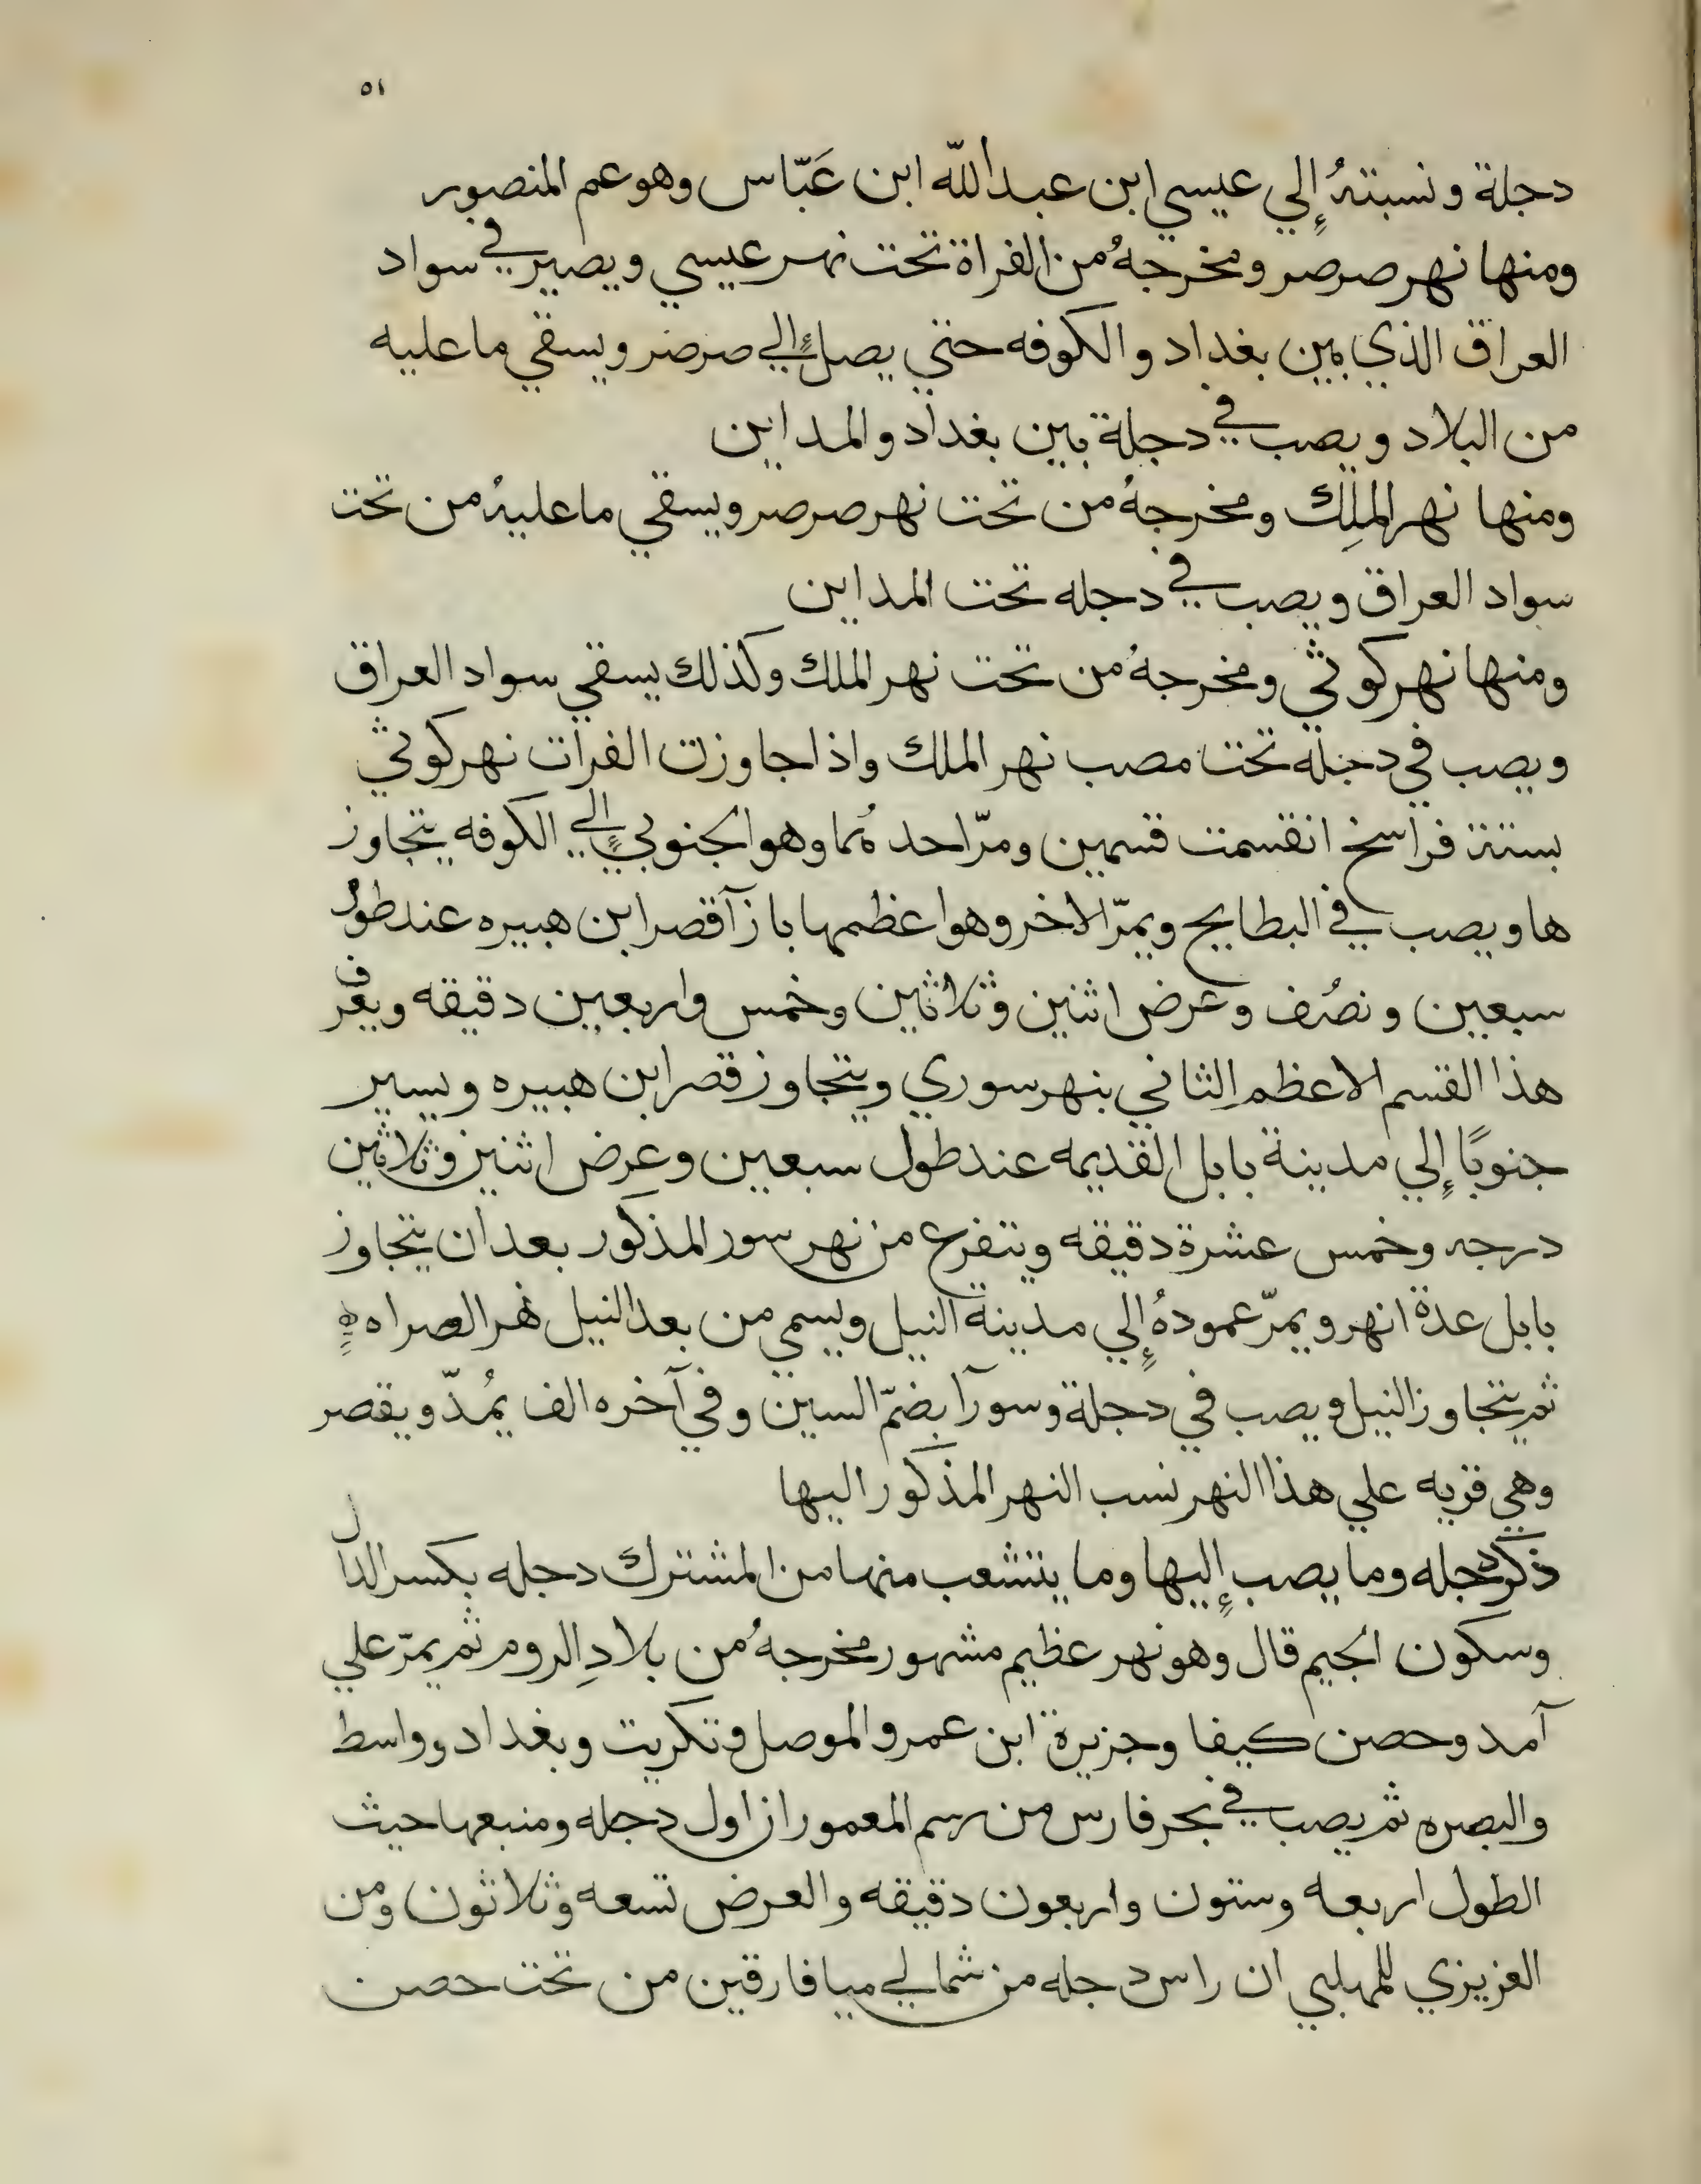 ٥١
دجلة ونسبتهُ إِلي عيسي ابن عبد اللّه ابن عَبّاس وهو عم المنصور
ومنها نهر صرصر ومخرجهُ من الفراة تحت نهر عيسي ويصير في سواد
العراق الذي بين بغداد والكوفه حتي يصل إِلي صرصر ويسقي ما عليه
من البلاد ويصب في دجلة بين بغداد والمداين
ومنها نهر الملِك ومخرجهُ من تحت نهر صرصر ويسقي ما عليهُ من تحت
سواد العراق ويصب في دجله تحت المداين
ومنها نهر كوثي ومخرجهُ من تحت نهر الملك وكذلك يسقي سواد العراق
ويصب في دجلة تحت مصب نهر الملك واذا جاوزت الفرات نهر كوثي
بستة فراسخ انقسمت قسمين ومرّ احدهُما وهو الجنوبي إِلي الكوفه يتجاوز
ها ويصب في البطايح ويمرّ الاخر وهو اعظمها بازآ قصر ابن هبيره عند طول
سبعين ونصُف وعرض اثنين وثلاثين وخمس واربعين دقيقه ويعرّف
هذا القسم الاعظم الثاني بنهر سوري ويتجاوز قصر ابن هبيره ويسير
جنوبًا إِلي مدينة بابل القديمه عند طول سبعين وعرض اثنين وثلاثين
درجه وخمس عشرة دقيقه ويتفرع من نهر سور المذكور بعد ان يتجاوز
بابل عدة انهر ويمرّ عمودهُ إِلي مدينة النيل ويسمي من بعد النيل نهر الصراه
ثم يتجاوز النيل ويصب في دجلة وسورآ بضمّ السين وفي آخره الف يُمدّ ويقصر
وهي قريه علي هذا النهر نسب النهر المذكور اليها
ذكر دجله وما يصب إِليها وما يتشعب منها من المشترك دجله بكسر الدال
وسكون الجيم قال وهو نهر عظيم مشهور مخرجهُ من بلادِ الروم ثم يمرّ علي
آمد وحصن كيفا وجزيرة ابن عمر والموصل وتكريت وبغداد وواسط
والبصره ثم يصب في بحر فارس من رسم المعمور ان اول دجله ومنبعها حيث
الطول اربعه وستون واربعون دقيقه والعرض تسعه وثلاثون ومن
العزيزي للمهلبي ان راس دجله من شمالي ميافارقين من تحت حصن